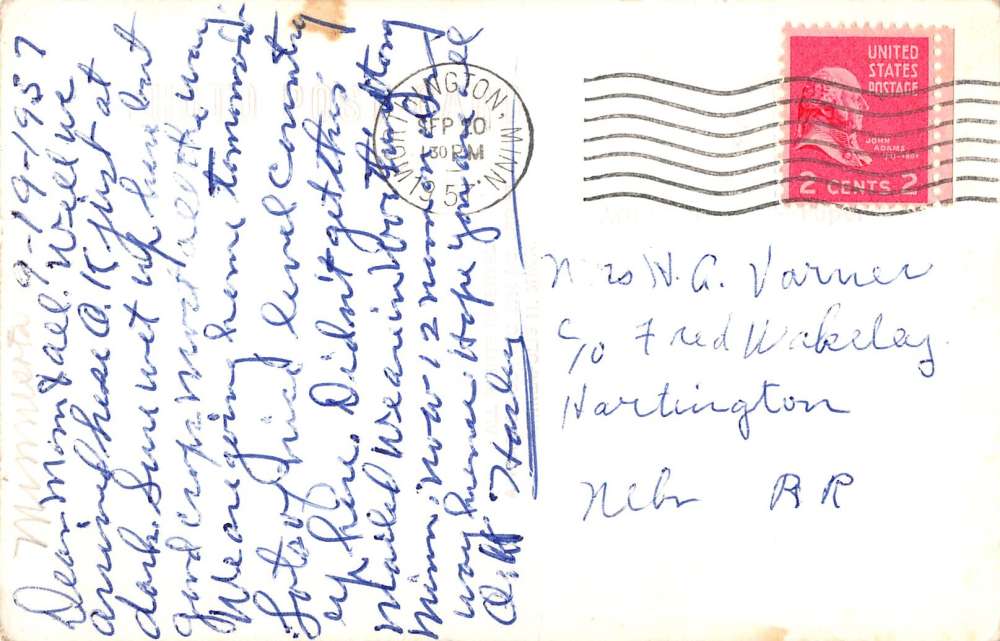 9-19-1957
Dear Mom & all. Well we
arrived here O.K just at
dark. Sure wet up here but
good crops most all the way
We are going home tommow.
Lots of nice level country
up here. Didnt get this
mailed we are in Worthington
Minn. now 12 noon and
way home. Hope you are all
Harley
Minnesota
WORTHINGTON, MINN.
SEP 20
1 30 PM
195
UNITED
STATES
POSTAGE
JOHN
ADAMS
2 CENTS 2
Mrs H. A. Varner
c/o Fred Wakeley
Hartington
Nebr R R